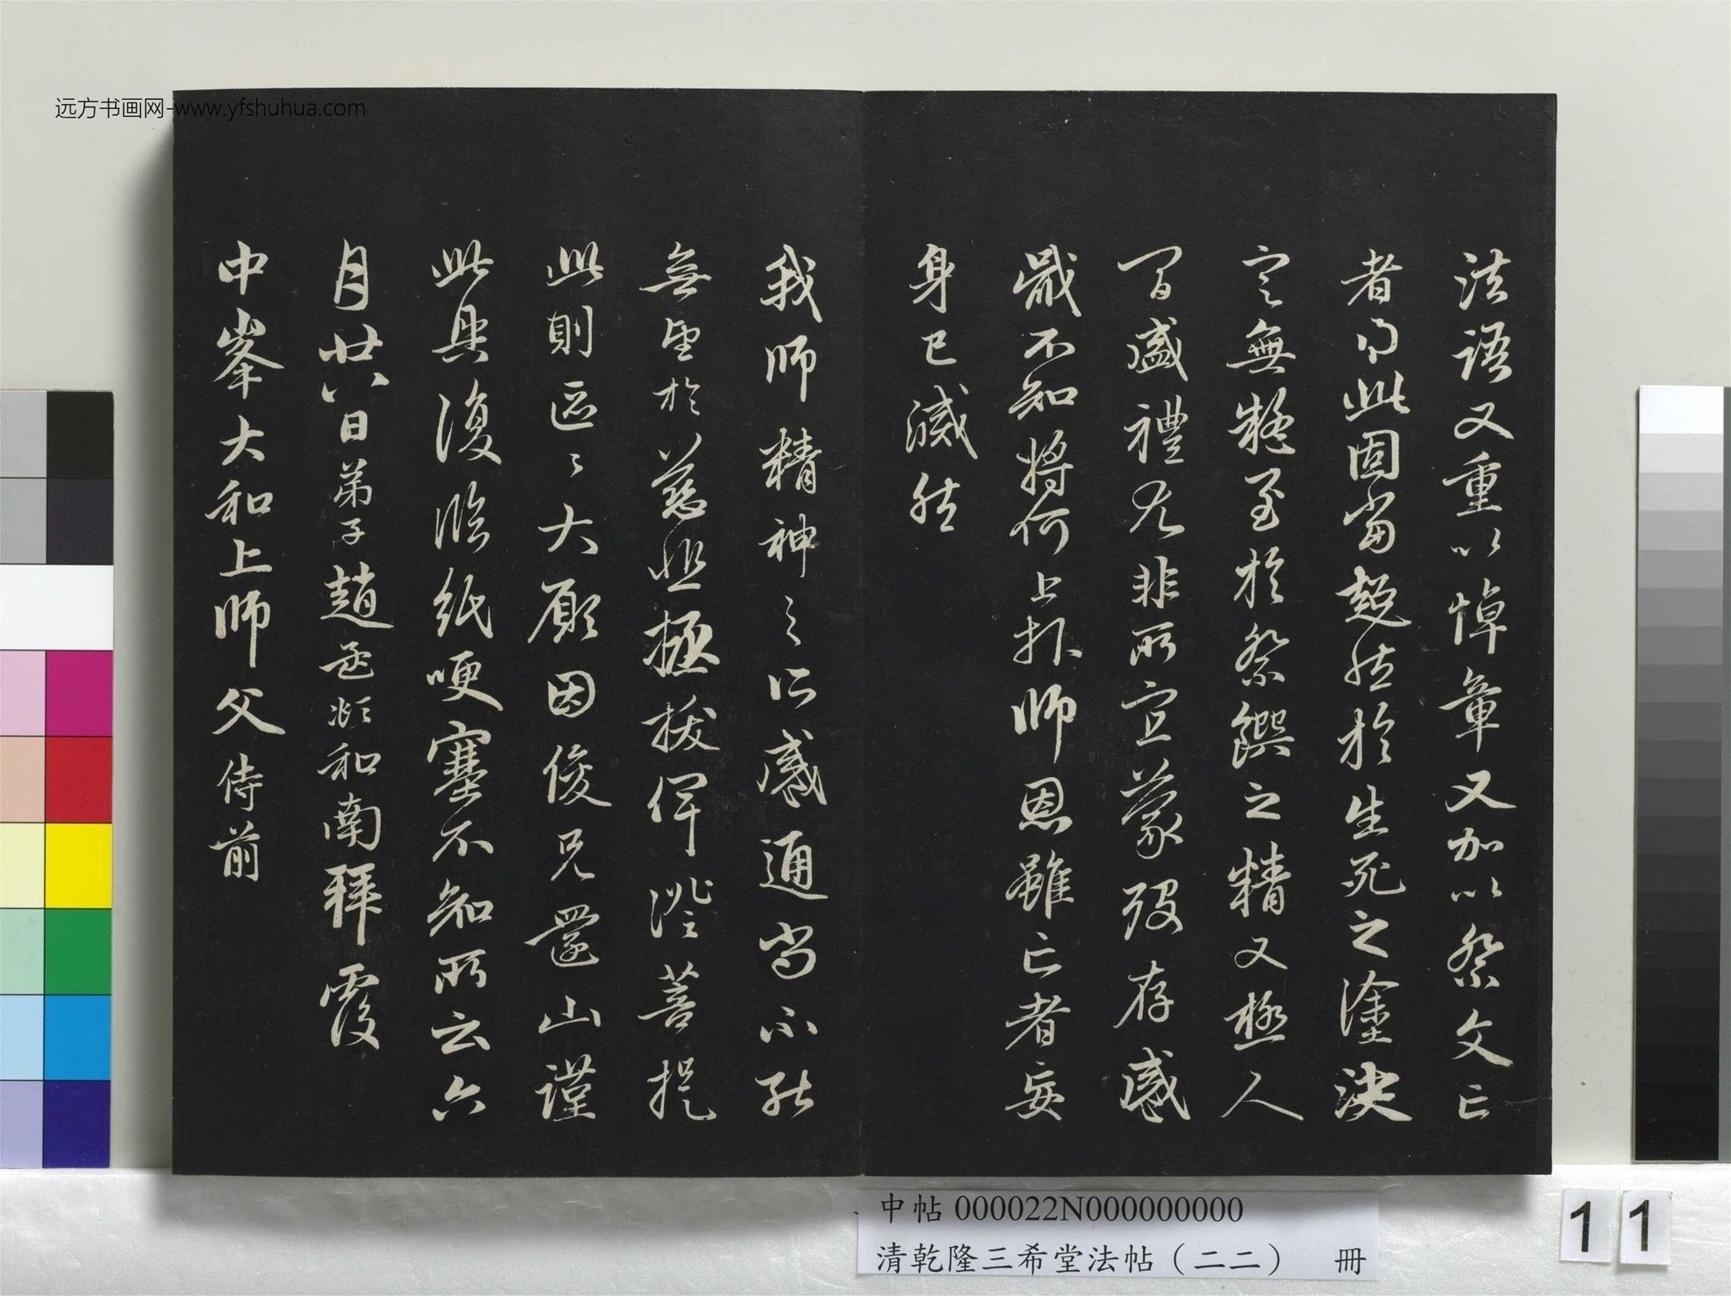 法語又重以悼章又加以祭文亡
者得此固當超然於生死之塗決
定無疑至於祭饌之精又極人
間盛禮尤非所宜蒙殁存感
戴不知將何上報師恩雖亡者妄
身已滅然
我師精神之所感通尚不能
無望於慈悲拯拔俾證菩提
此則區〻大願因俊兄還山謹
此具復臨紙哽塞不知所云六
月廿八日弟子趙孟頫和南拜覆
中峯大和上師父侍前
远方书画网-www.yfshuhua.com
中帖 000022N000000000
清乾隆三希堂法帖（二二） 冊
11